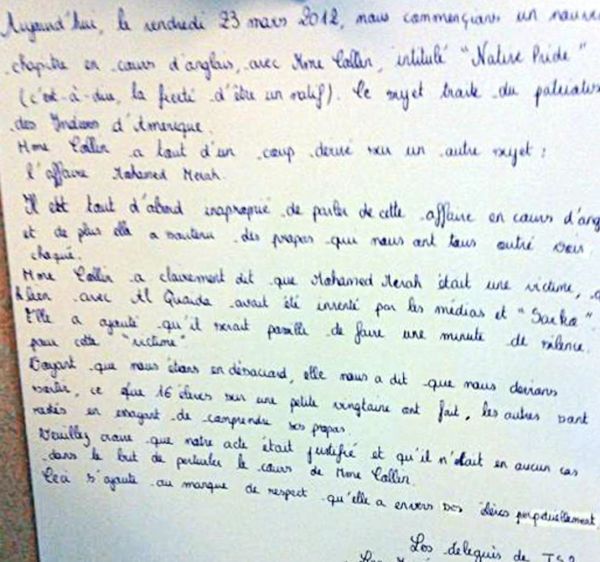 Aujourd'hui, le vendredi 23 mars 2012, nous commençions un nouve
chapitre en cours d'anglais, avec Mme Collin, intitulé "Native Pride"
(c'est-à-dire, la fierté d'être un natif). Ce sujet traite du patriotis
des Indiens d'Amérique.
Mme Collin a tout d'un coup dérivé sur un autre sujet :
l'affaire Mohamed Merah.
Il est tout d'abord inaproprié de parler de cette affaire en cours d'ang
et de plus elle a soutenu des propos qui nous ont tous outré voir
choqué.
Mme Collin a clairement dit que Mohamed Merah était une victime,
lien avec Al Quaïda avait été inventé par les médias et "Sarko".
Elle a ajouté qu'il serait possible de faire une minute de silence
pour cette "victime".
Voyant que nous étions en désaccord, elle nous a dit que nous devrions
sortir, ce que 16 élèves sur une petite vingtaine ont fait, les autres sont
restés en essayant de comprendre ses propos.
Veuillez croire que notre acte était justifié et qu'il n'était en aucun cas
dans le but de perturber le cours de Mme Collin.
Ceci s'ajoute au manque de respect qu'elle a envers ses élèves perpétuellement
Les délégués de TS2